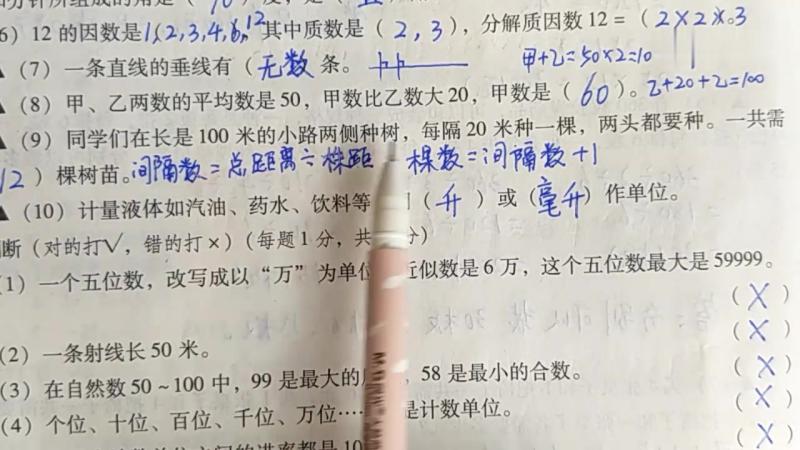 6) 12 的因数是1,2,3,4,6,12 其中质数是 ( 2, 3 ), 分解质因数 12 = ( 2×2×3
(7) 一条直线的垂线有 ( 无数 条。 甲+乙=50×2=10
(8) 甲、乙两数的平均数是 50, 甲数比乙数大 20, 甲数是 ( 60 )。 乙+20+乙=100
(9) 同学们在长是 100 米的小路两侧种树, 每隔 20 米种一棵, 两头都要种。一共需
12 ) 棵树苗。间隔数=总距离÷株距 棵数=间隔数+1
(10) 计量液体如汽油、药水、饮料等 ( 升 ) 或 (毫升) 作单位。
断 (对的打√, 错的打×) (每题 1 分, 共 分)
(1) 一个五位数, 改写成以“万”为单位 近似数是 6 万, 这个五位数最大是 59999。
( X )
( X )
(2) 一条射线长 50 米。
(3) 在自然数 50～100 中, 99 是最大的 , 58 是最小的合数。 ( X )
(4) 个位、十位、百位、千位、万位…… 是计数单位。 ( X )
( X